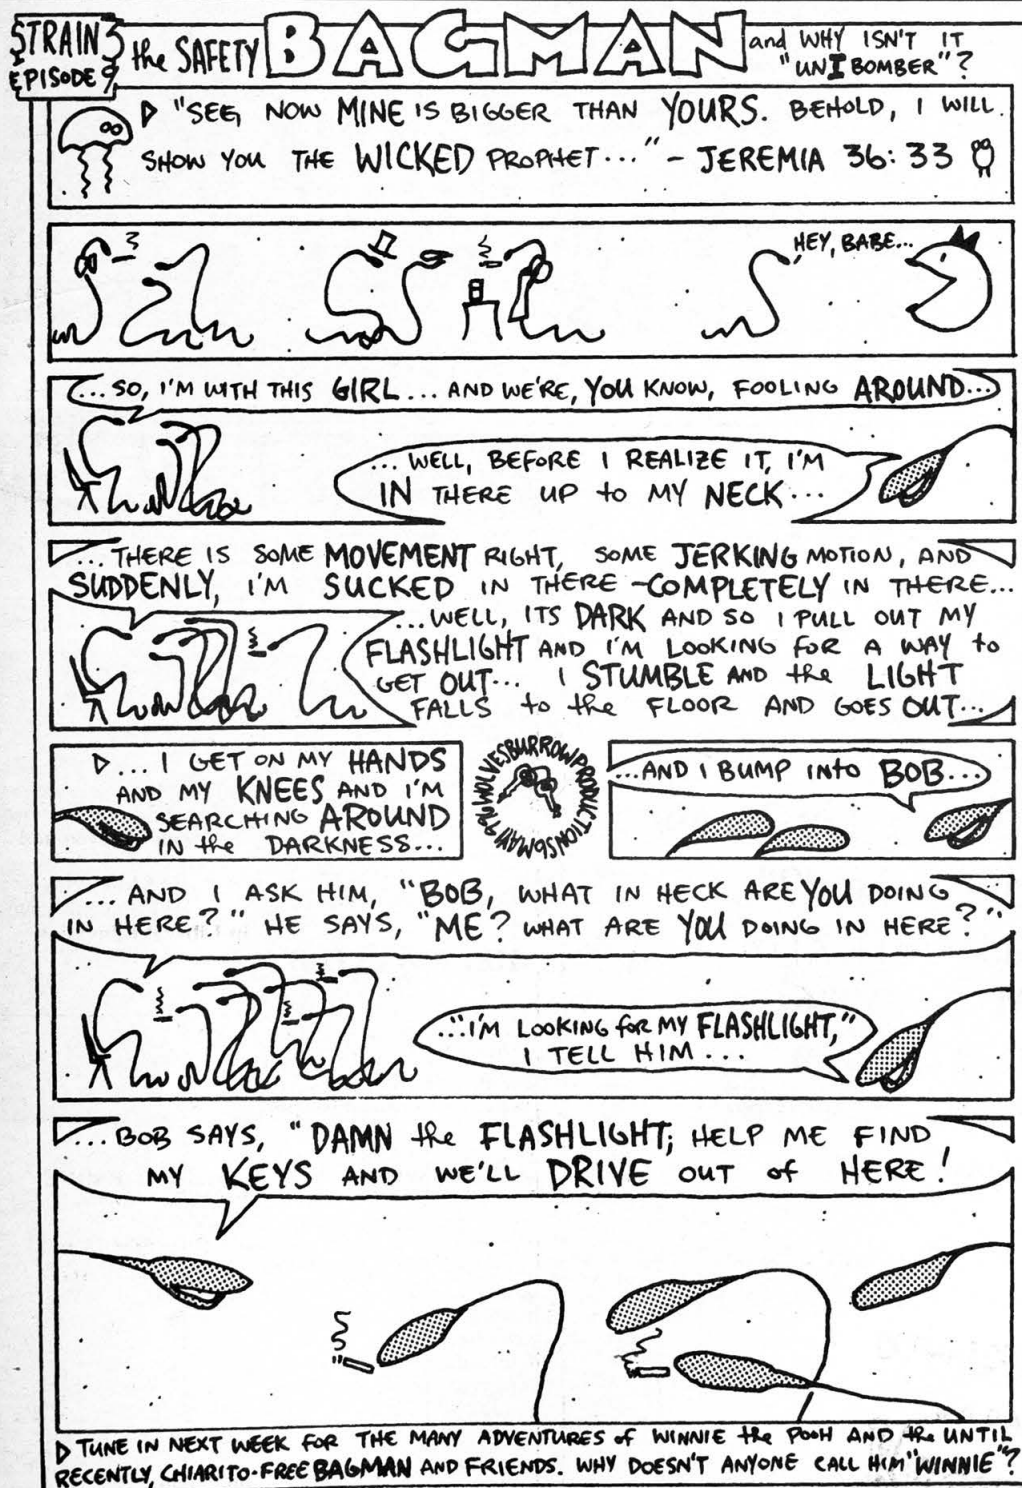 STRAIN 3
EPISODE 9
the SAFETY BAGMAN and WHY ISN'T IT
"UNIBOMBER"?
"SEE, NOW MINE IS BIGGER THAN YOURS. BEHOLD, I WILL
SHOW YOU THE WICKED PROPHET..." - JEREMIA 36:33
HEY, BABE...
...SO, I'M WITH THIS GIRL... AND WE'RE, YOU KNOW, FOOLING AROUND...
...WELL, BEFORE I REALIZE IT, I'M
IN THERE UP to MY NECK...
...THERE IS SOME MOVEMENT RIGHT, SOME JERKING MOTION, AND
SUDDENLY, I'M SUCKED IN THERE - COMPLETELY IN THERE...
...WELL, ITS DARK AND SO I PULL OUT MY
FLASHLIGHT AND I'M LOOKING FOR A WAY to
GET OUT... I STUMBLE AND the LIGHT
FALLS to the FLOOR AND GOES OUT...
...I GET ON MY HANDS
AND MY KNEES AND I'M
SEARCHING AROUND
IN the DARKNESS...
WOLVESBURROWPRODUCTIONS
...AND I BUMP INto BOB...
...AND I ASK HIM, "BOB, WHAT IN HECK ARE YOU DOING
IN HERE?" HE SAYS, "ME? WHAT ARE YOU DOING IN HERE?"
..."I'M LOOKING for MY FLASHLIGHT,"
I TELL HIM...
...BOB SAYS, "DAMN the FLASHLIGHT; HELP ME FIND
MY KEYS AND WE'LL DRIVE OUT of HERE!
TUNE IN NEXT WEEK FOR THE MANY ADVENTURES of WINNIE the POOH AND the UNTIL
RECENTLY, CHIARITO-FREE BAGMAN AND FRIENDS. WHY DOESN'T ANYONE CALL HIM "WINNIE"?